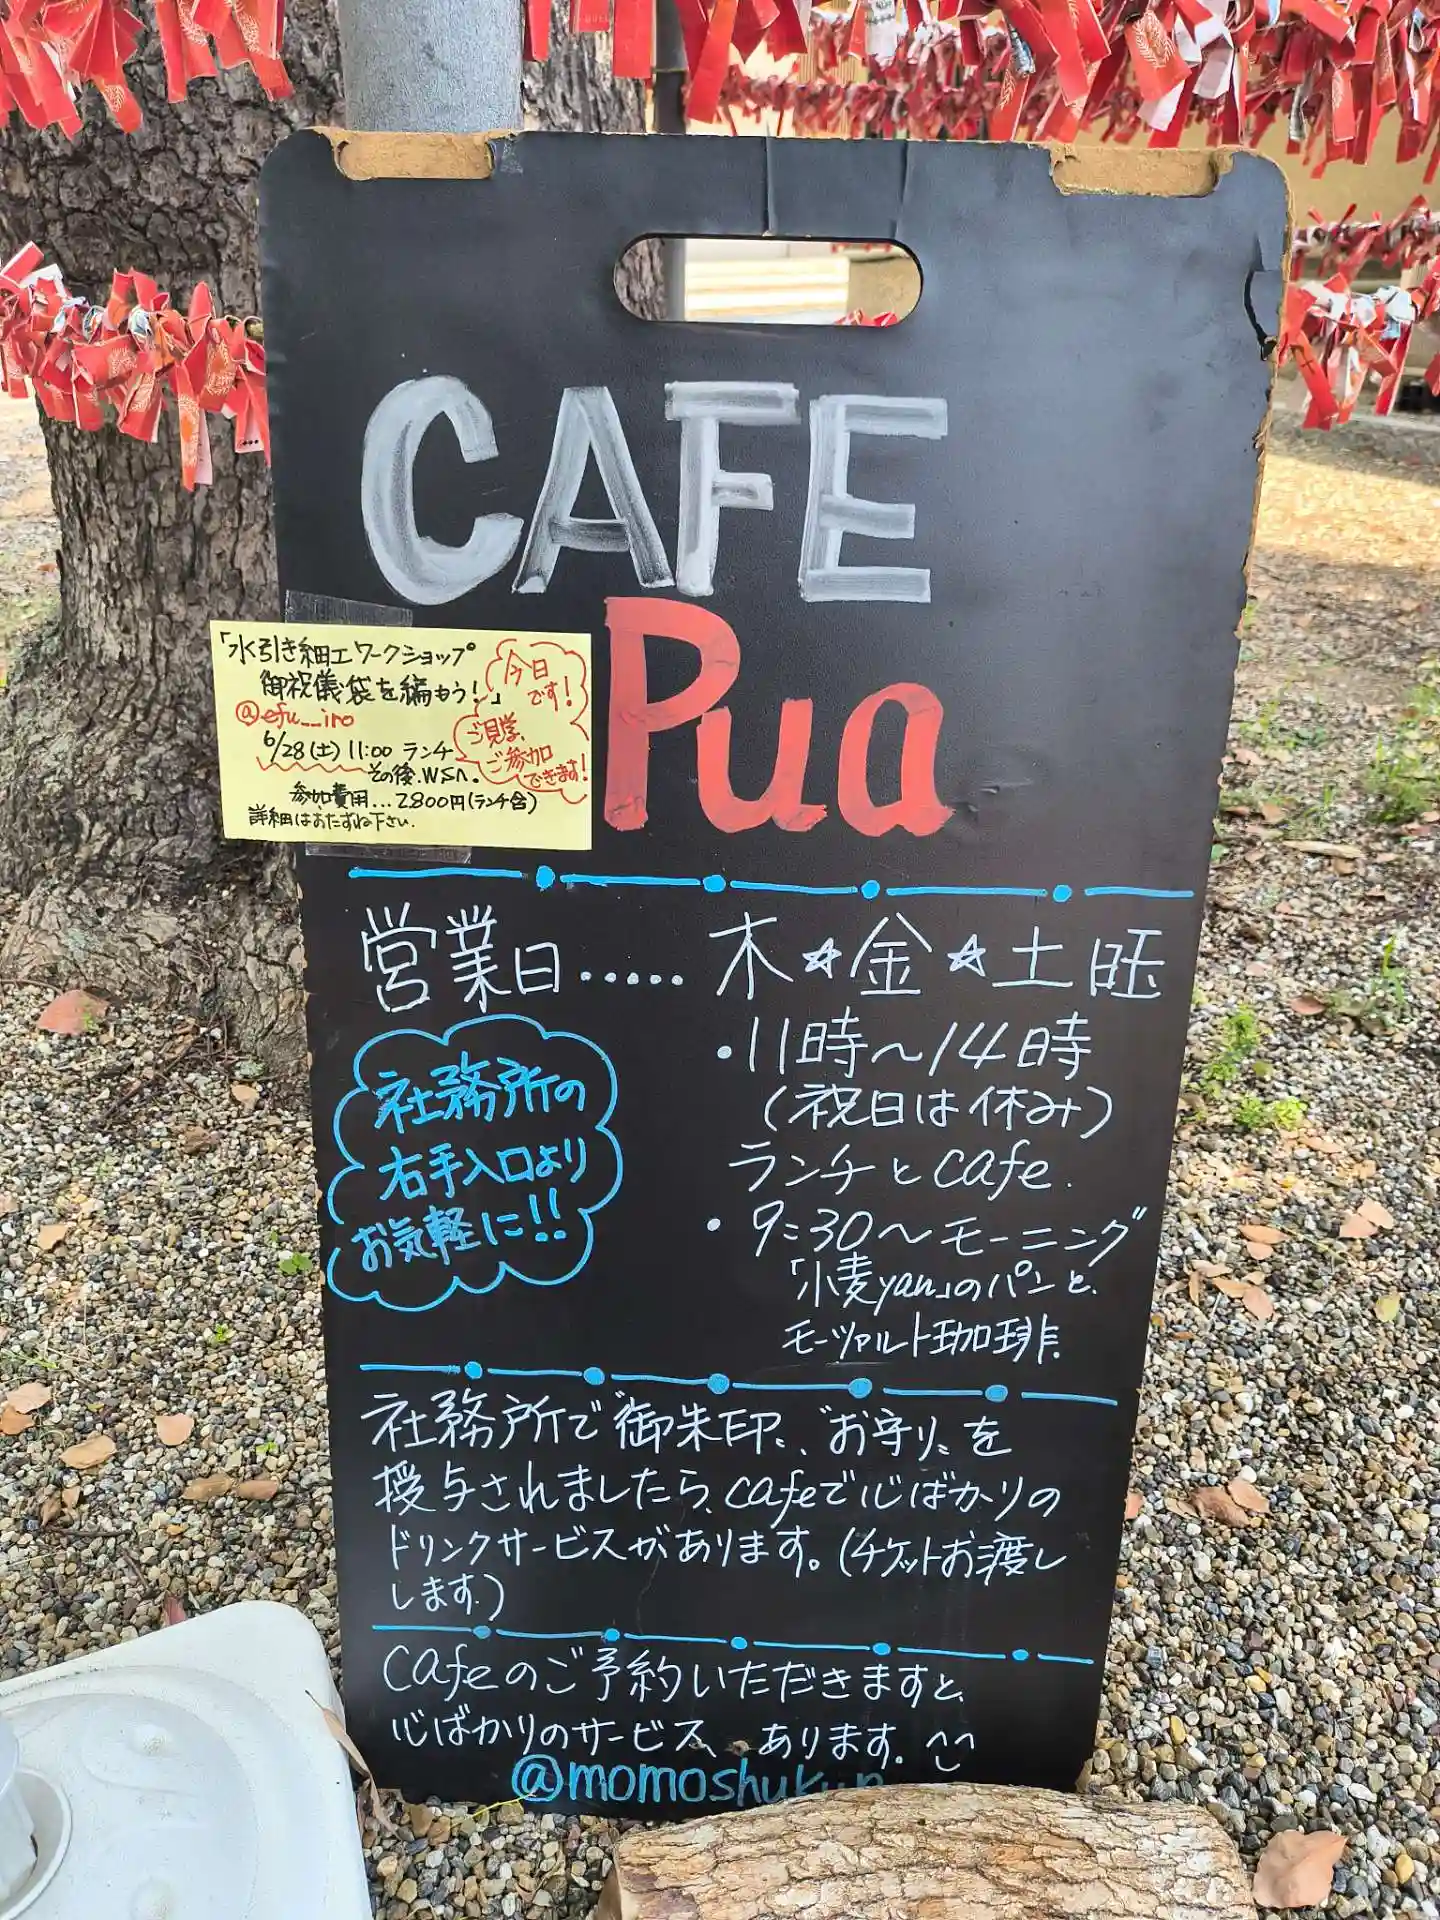 CAFE
Pua
「水引き細工ワークショップ
御祝儀袋を編もう!」
@efu__iro
6/28(土)11:00 ランチ
その後.WSへ.
参加費用...2800円(ランチ含)
詳細はおたずね下さい.
今日
です!
ご見学、
ご参加
できます!
営業日..... 木☆金☆土旺
・11時～14時
(祝日は休み)
ランチとcafe.
・9:30～モーニング
「小麦yan」のパンと、
モーツァルト珈琲.
社務所の
右手入口より
お気軽に!!
社務所で〝御朱印〟、〝お守り〟を
授与されましたら、cafeで心ばかりの
ドリンクサービスがあります。(チケットお渡し
します.)
Cafeのご予約いただきますと、
心ばかりのサービス、あります。^^
@momoshuku